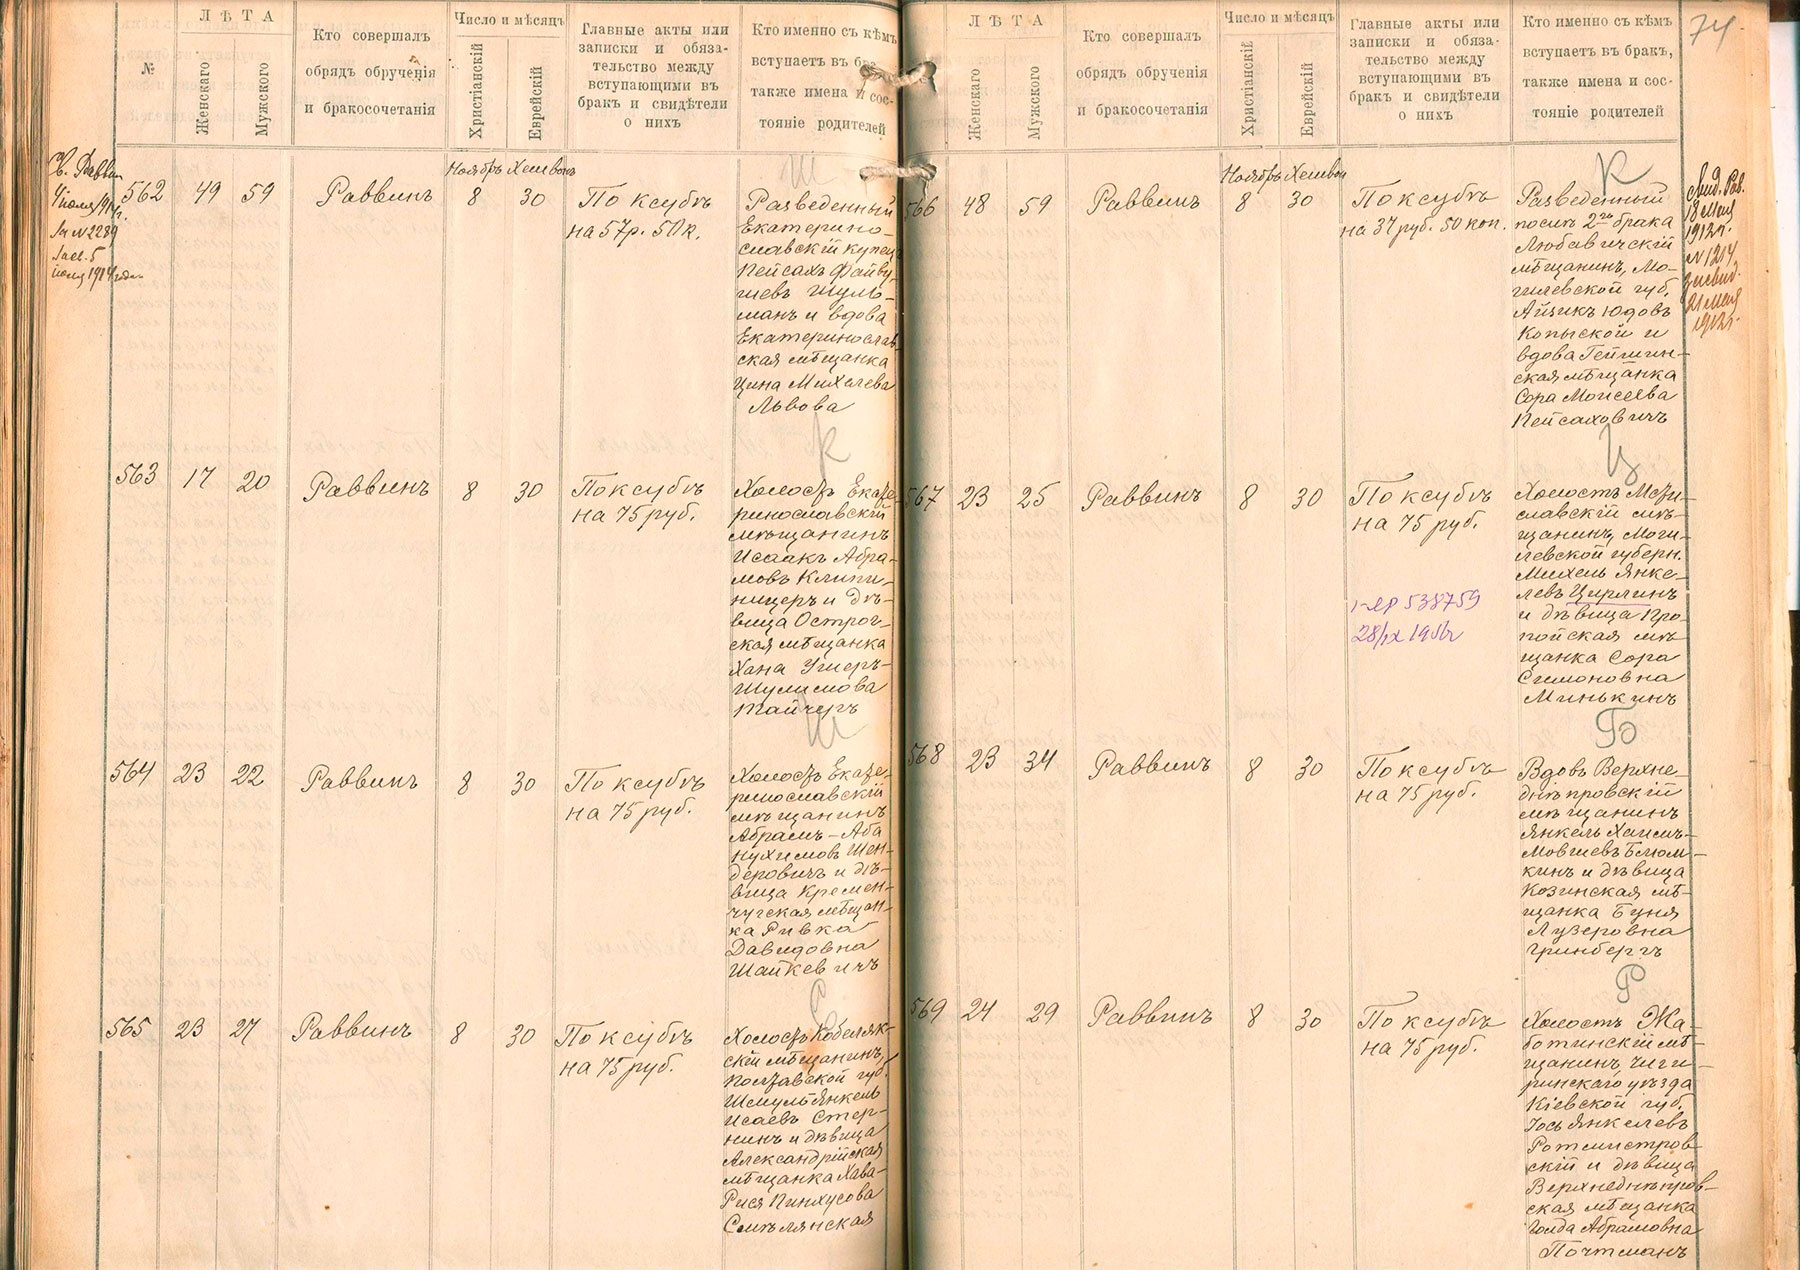 ЛѢТА
Число и мѣсяцъ
№
Женскаго
Мужского
Кто совершалъ
обрядъ обрученія
и бракосочетанія
Христіанскій
Еврейскій
Главные акты или
записки и обяза-
тельство между
вступающими въ
бракъ и свидѣтели
о нихъ
Кто именно съ кѣмъ
вступаетъ въ бра
также имена и сос-
тояніе родителей
Ноябрь Хешвонъ
562 49 59 Раввинъ 8 30
По ксубѣ
на 57 р. 50 к.
Ш
Разведенный
Екатерино-
славскій купец
Пейсахъ Файву-
шевъ Шуль-
манъ и вдова
Екатеринослав-
ская мѣщанка
Цина Михелева
Львова
563 17 20 Раввинъ 8 30
По ксубѣ
на 75 руб.
К
Холостъ Екате-
ринославскій
мѣщанинъ
Исаакъ Абра-
мовъ Клипи-
ницеръ и дѣ-
вица Острог-
ская мѣщанка
Хана Ушеръ-
Шулимова
Тайчеръ
564 23 22 Раввинъ 8 30
По ксубѣ
на 75 руб.
Ш
Холостъ Екате-
ринославскій
мѣщанинъ
Абрамъ-Аба
Нухимовъ Шен-
деровичъ и дѣ-
вица Кремен-
чугская мѣщан-
ка Ривка
Давидовна
Шайкевичъ
565 23 27 Раввинъ 8 30
По ксубѣ
на 75 руб.
С
Холостъ Кобеляк-
скій мѣщанинъ,
Полтавской губ.
Шмуль Янкель
Исаевъ Стер-
нинъ и дѣвица
Александрійская
мѣщанка Хава-
Рися Пинхусова
Смѣлянская
74
ЛѢТА
Число и мѣсяцъ
Женскаго
Мужского
Кто совершалъ
обрядъ обрученія
и бракосочетанія
Христіанскій
Еврейскій
Главные акты или
записки и обяза-
тельство между
вступающими въ
бракъ и свидѣтели
о нихъ
Кто именно съ кѣмъ
вступаетъ въ бракъ,
также имена и сос-
тояніе родителей
Ноябрь Хешвон
566 48 59 Раввинъ 8 30
По ксубѣ
на 37 руб. 50 коп.
К
Разведенный
послѣ 2го брака
Любавичскій
мѣщанинъ, Мо-
гилевской губ.
Айзикъ Юдовъ
Копыской и
вдова Гейшин-
ская мѣщанка
Сора Моисеева
Пейсаховичъ
18 Мая
1912 г.
№ 1214
21 Мая
1912 г.
567 23 25 Раввинъ 8 30
По ксубѣ
на 75 руб.
538759
Ц
Холостъ Мсти-
славскій мѣ-
щанинъ, Моги-
левской губерн.
Михель Янке-
левъ Цирлинъ
и дѣвица Про-
пойская мѣ-
щанка Сора
Симоновна
Минькинъ
568 23 34 Раввинъ 8 30
По ксубѣ
на 75 руб.
Б
Вдовъ Верхне-
днѣпровскій
мѣщанинъ
Янкель Хаимъ-
Мовшевъ Блюм-
кинъ и дѣвица
Козинская мѣ-
щанка Буня
Лузеровна
Гринбергъ
569 24 29 Раввинъ 8 30
По ксубѣ
на 75 руб.
Р
Холостъ Жа-
ботинскій мѣ-
щанинъ, Чиги-
ринскаго уѣзда
Кіевской губ.
Іось Янкелевъ
Ротмистров-
скій и дѣвица
Верхнеднѣпров-
ская мѣщанка
Голда Абрамовна
Почтманъ